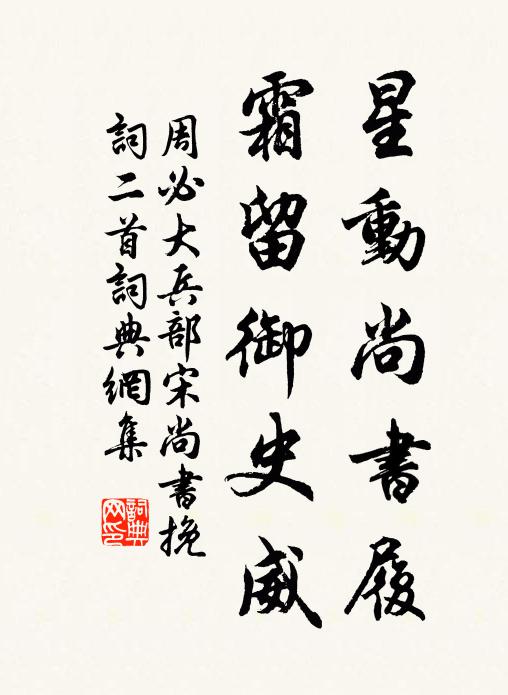 星動尚書履
霜留御史威
周必大兵部宋尚書挽
詞二首詞典網集
詞典
网印